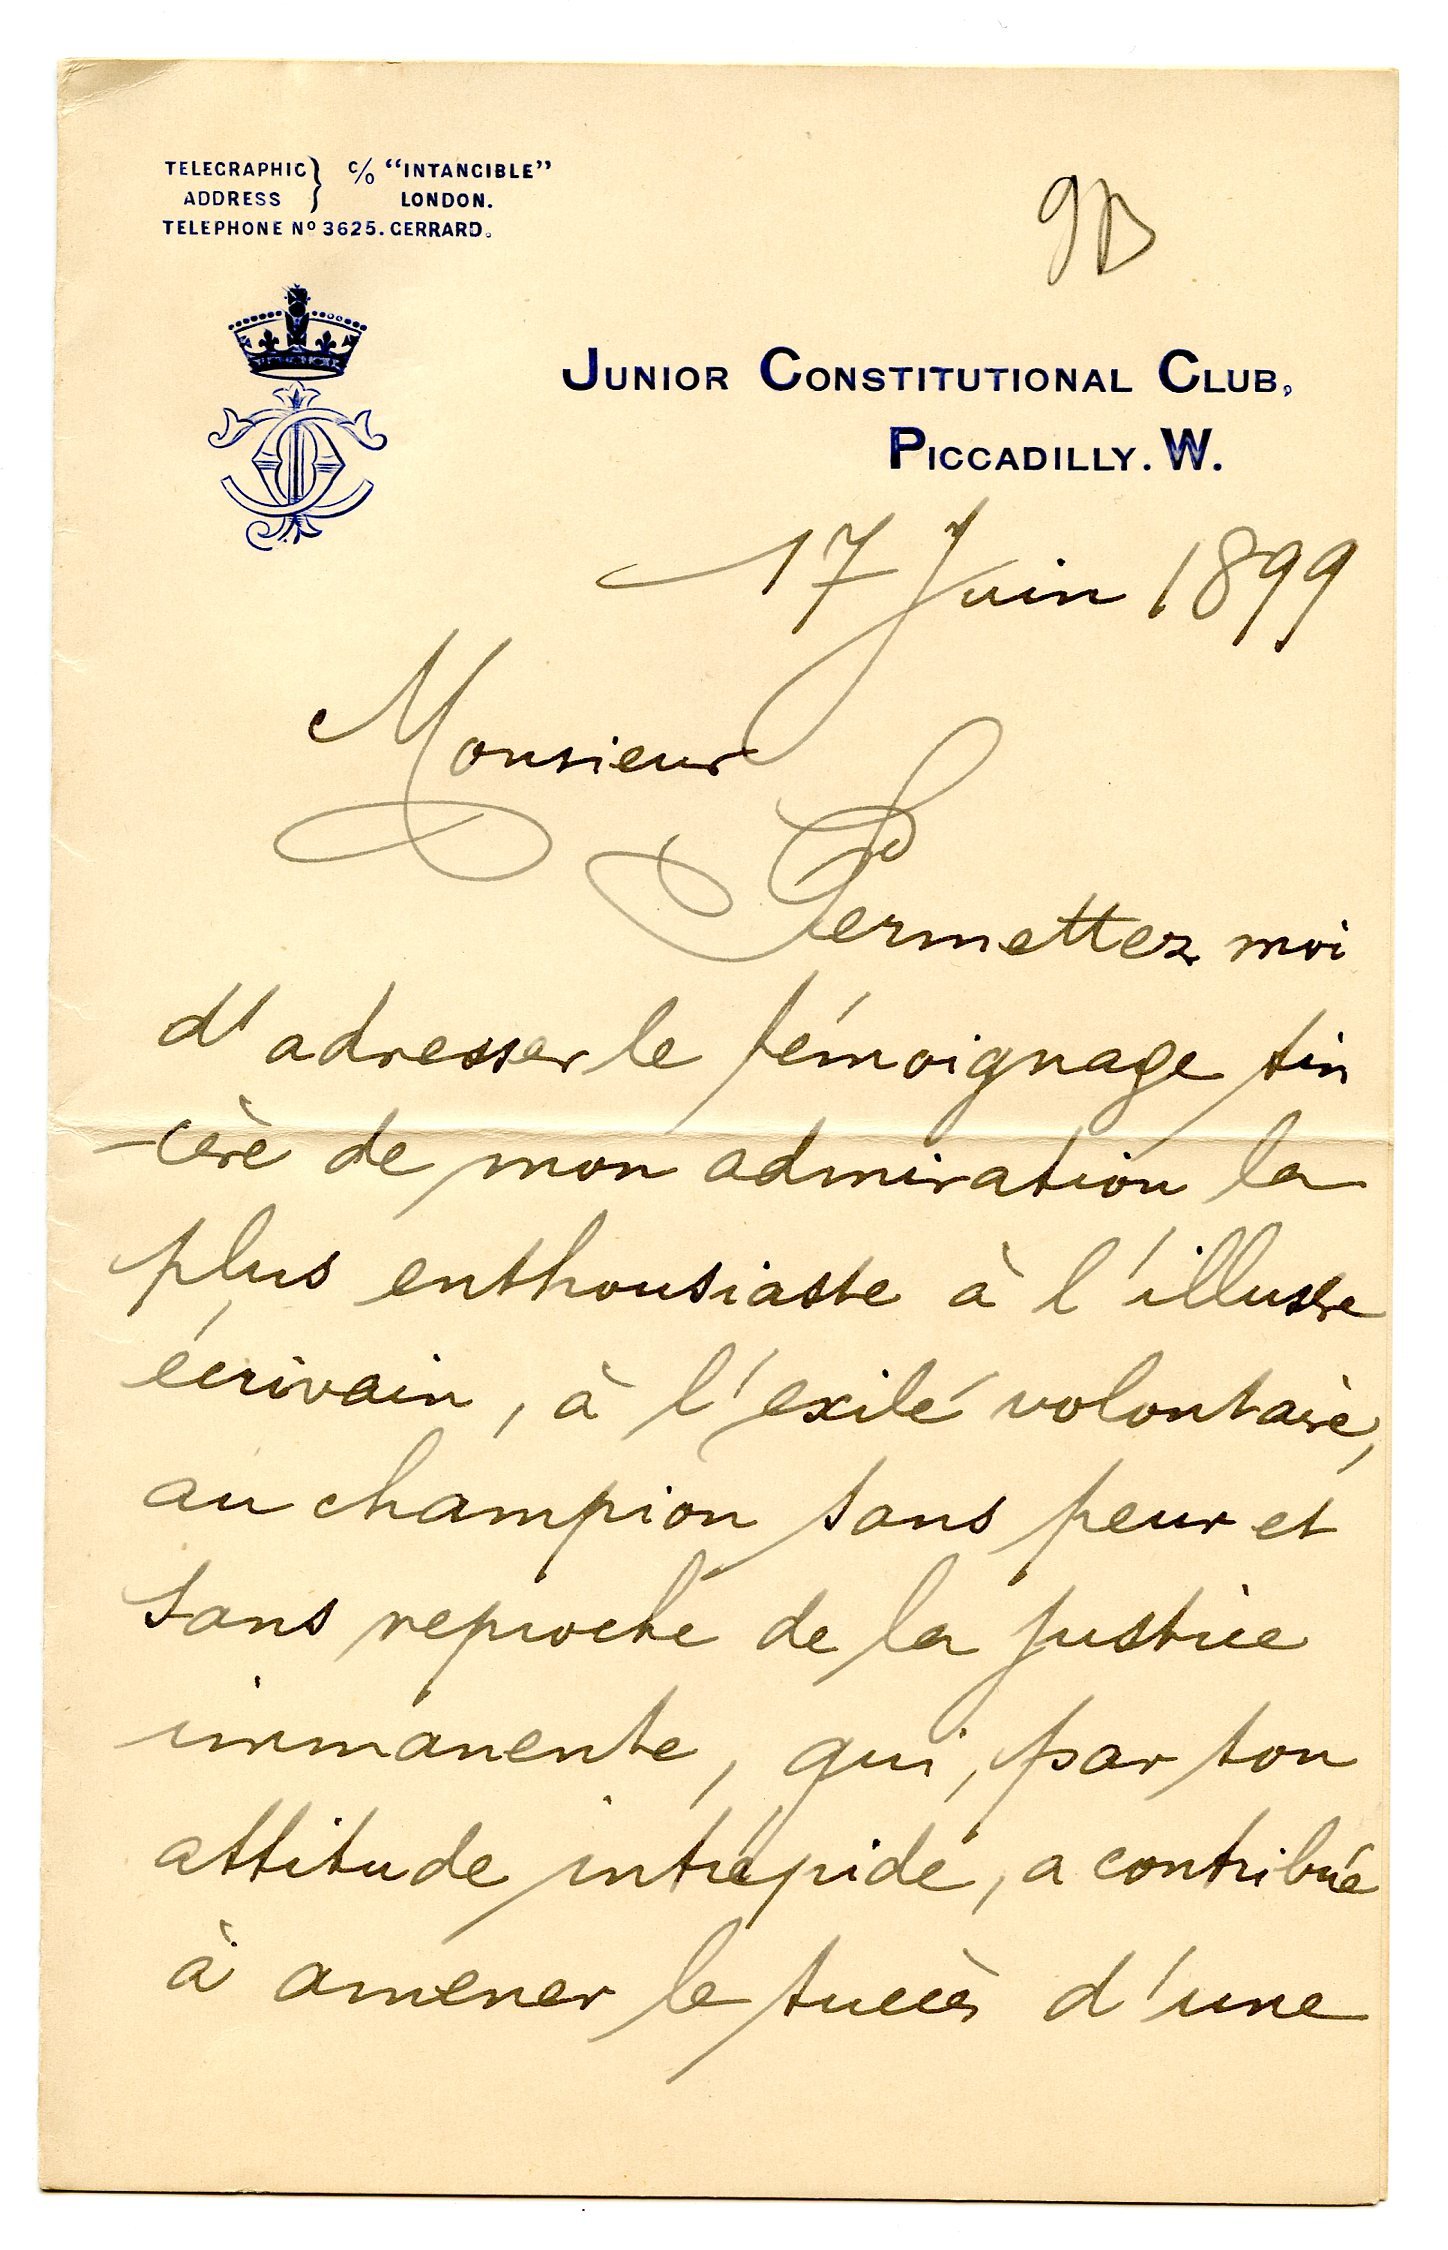 TELEGRAPHIC ADDRESS } c/o "INTANGIBLE" LONDON.
TELEPHONE No 3625. GERRARD.
JUNIOR CONSTITUTIONAL CLUB,
PICCADILLY. W.
17 Juin 1899
Monsieur
Permettez moi
d'adresser le témoignage sin
-cère de mon admiration la
plus enthousiaste à l'illustre
écrivain, à l'exilé volontaire,
au champion sans peur et
sans reproche de la justice
immanente, qui, par son
attitude intrépide, a contribué
à amener le succès d'une